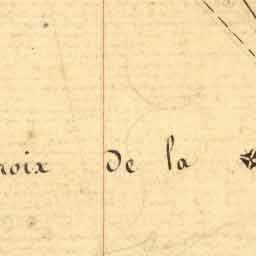 roix de la